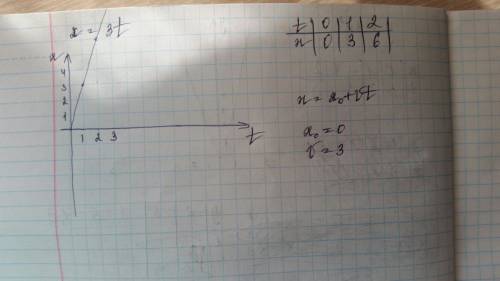 x = 3t
x
4
3
2
1
1 2 3
t
t | 0 | 1 | 2
x | 0 | 3 | 6
x = x₀ + vt
x₀ = 0
v = 3